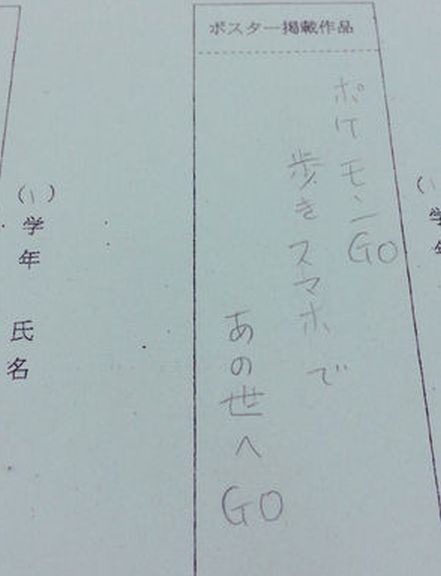 ポスター掲載作品
ポケモンGO
歩きスマホで
あの世へGO
(1)学年 氏名
(1
学
年